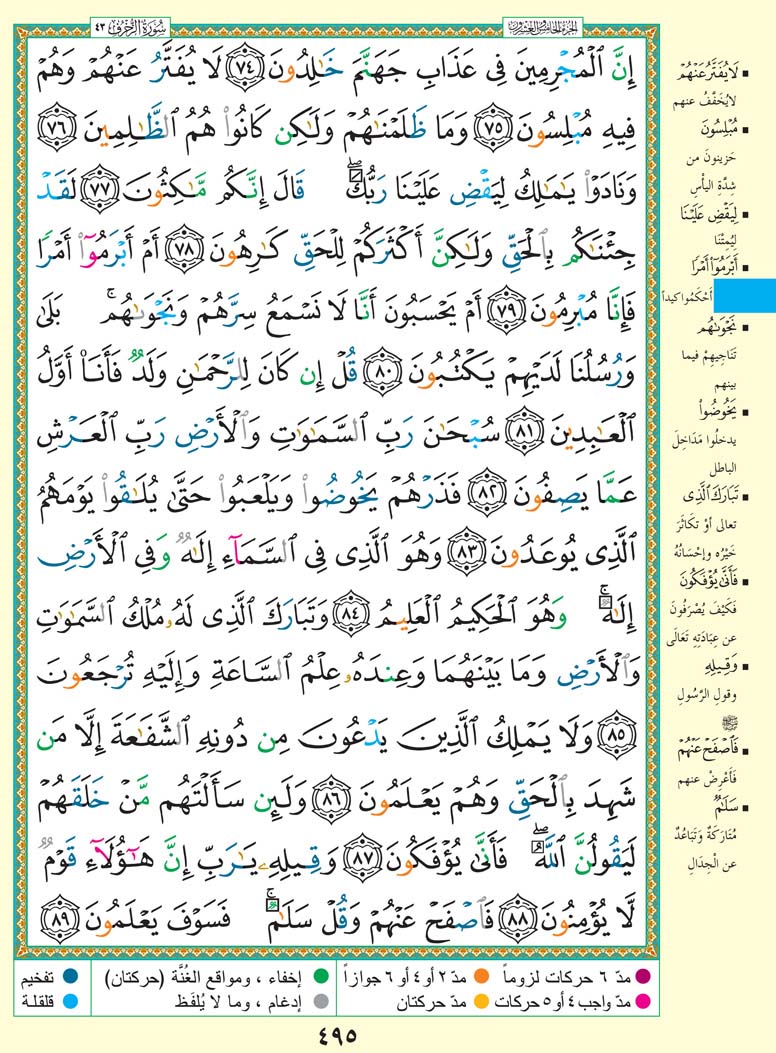 سُورَةُ الزُّخْرُفِ ٤٣
الجزء الخامس والعشرون
إِنَّ ٱلۡمُجۡرِمِينَ فِي عَذَابِ جَهَنَّمَ خَٰلِدُونَ ٧٤ لَا يُفَتَّرُ عَنۡهُمۡ وَهُمۡ
فِيهِ مُبۡلِسُونَ ٧٥ وَمَا ظَلَمۡنَٰهُمۡ وَلَٰكِن كَانُواْ هُمُ ٱلظَّٰلِمِينَ ٧٦
وَنَادَوۡاْ يَٰمَٰلِكُ لِيَقۡضِ عَلَيۡنَا رَبُّكَۖ قَالَ إِنَّكُم مَّٰكِثُونَ ٧٧ لَقَدۡ
جِئۡنَٰكُم بِٱلۡحَقِّ وَلَٰكِنَّ أَكۡثَرَكُمۡ لِلۡحَقِّ كَٰرِهُونَ ٧٨ أَمۡ أَبۡرَمُوٓاْ أَمۡرٗا
فَإِنَّا مُبۡرِمُونَ ٧٩ أَمۡ يَحۡسَبُونَ أَنَّا لَا نَسۡمَعُ سِرَّهُمۡ وَنَجۡوَىٰهُمۚ بَلَىٰ
وَرُسُلُنَا لَدَيۡهِمۡ يَكۡتُبُونَ ٨٠ قُلۡ إِن كَانَ لِلرَّحۡمَٰنِ وَلَدٞ فَأَنَا۠ أَوَّلُ
ٱلۡعَٰبِدِينَ ٨١ سُبۡحَٰنَ رَبِّ ٱلسَّمَٰوَٰتِ وَٱلۡأَرۡضِ رَبِّ ٱلۡعَرۡشِ
عَمَّا يَصِفُونَ ٨٢ فَذَرۡهُمۡ يَخُوضُواْ وَيَلۡعَبُواْ حَتَّىٰ يُلَٰقُواْ يَوۡمَهُمُ
ٱلَّذِي يُوعَدُونَ ٨٣ وَهُوَ ٱلَّذِي فِي ٱلسَّمَآءِ إِلَٰهٞ وَفِي ٱلۡأَرۡضِ
إِلَٰهٞۚ وَهُوَ ٱلۡحَكِيمُ ٱلۡعَلِيمُ ٨٤ وَتَبَارَكَ ٱلَّذِي لَهُۥ مُلۡكُ ٱلسَّمَٰوَٰتِ
وَٱلۡأَرۡضِ وَمَا بَيۡنَهُمَا وَعِندَهُۥ عِلۡمُ ٱلسَّاعَةِ وَإِلَيۡهِ تُرۡجَعُونَ
٨٥ وَلَا يَمۡلِكُ ٱلَّذِينَ يَدۡعُونَ مِن دُونِهِ ٱلشَّفَٰعَةَ إِلَّا مَن
شَهِدَ بِٱلۡحَقِّ وَهُمۡ يَعۡلَمُونَ ٨٦ وَلَئِن سَأَلۡتَهُم مَّنۡ خَلَقَهُمۡ
لَيَقُولُنَّ ٱللَّهُۖ فَأَنَّىٰ يُؤۡفَكُونَ ٨٧ وَقِيلِهِۦ يَٰرَبِّ إِنَّ هَٰٓؤُلَآءِ قَوۡمٞ
لَّا يُؤۡمِنُونَ ٨٨ فَٱصۡفَحۡ عَنۡهُمۡ وَقُلۡ سَلَٰمٞۚ فَسَوۡفَ يَعۡلَمُونَ ٨٩
▪ لَا يُفَتَّرُ عَنۡهُمۡ
لا يُخَفَّفُ عنهم
▪ مُبۡلِسُونَ
حَزينونَ من
شِدَّةِ اليأْسِ
▪ لِيَقۡضِ عَلَيۡنَا
لِيُمِتْنَا
▪ أَبۡرَمُوٓاْ أَمۡرٗا
أَحْكَمُوا كيداً
▪ نَجۡوَىٰهُم
تَنَاجِيهِمْ فيما
بينهم
▪ يَخُوضُواْ
يدخلُوا مَدَاخِلَ
الباطل
▪ تَبَارَكَ ٱلَّذِي
تعالى أوْ تكَاثَرَ
خَيْرُه وإحْسَانُهُ
▪ فَأَنَّىٰ يُؤۡفَكُونَ
فَكَيْفَ يُصْرَفُونَ
عن عِبَادَتِهِ تَعَالَى
▪ وَقِيلِهِۦ
وقولِ الرّسُولِ
ﷺ
▪ فَٱصۡفَحۡ عَنۡهُمۡ
فَأَعْرِضْ عنهم
▪ سَلَٰمٞ
مُتَارَكَةٌ وَتَبَاعُدٌ
عن الْجِدَالِ
مدّ ٦ حركات لزوماً ● مدّ ٢ أو ٤ أو ٦ جوازاً
مدّ واجب ٤ أو ٥ حركات ● مدّ حركتان
إخفاء ، ومواقع الغُنَّة (حركتان) ● تفخيم
إدغام ، وما لا يُلفَظ ● قلقلة
٤٩٥